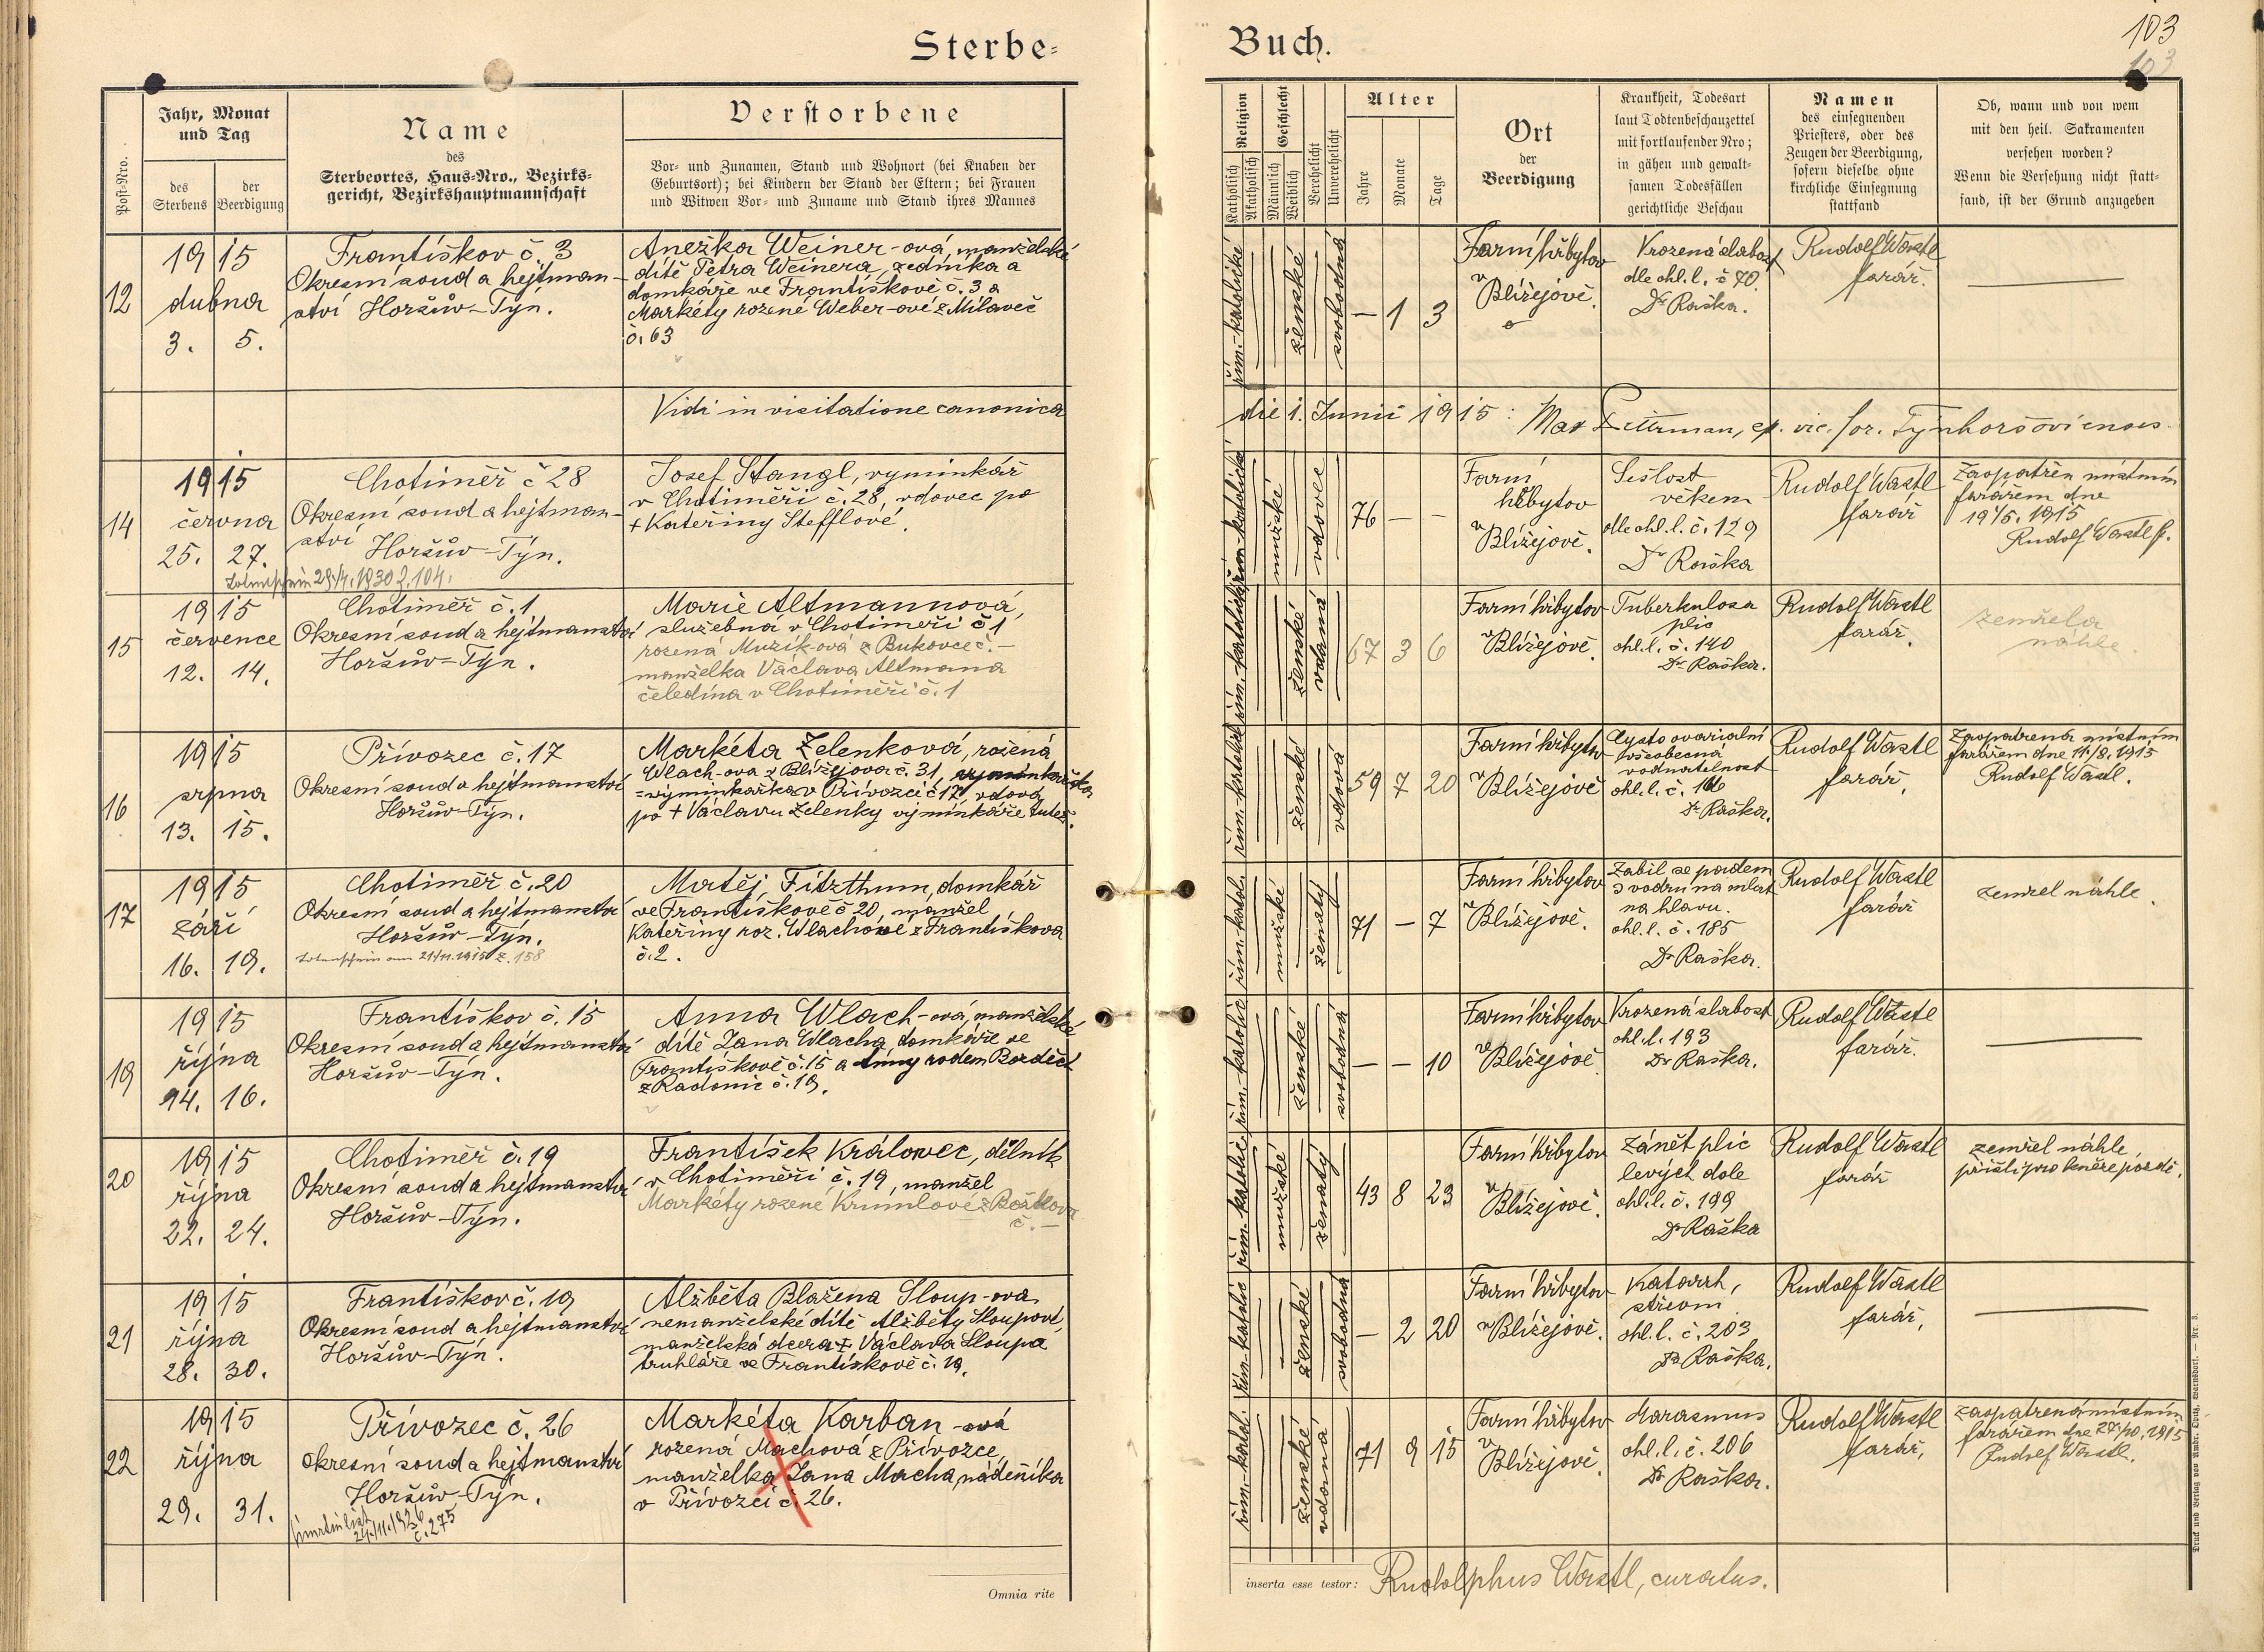 Sterbe-
Buch.
103
103
Post-Nro.
Jahr, Monat
und Tag
des
Sterbens
der
Beerdigung
Name
des
Sterbeortes, Haus-Nro., Bezirks-
gericht, Bezirkshauptmannschaft
Verstorbene
Vor- und Zunamen, Stand und Wohnort (bei Knaben der
Geburtsort); bei Kindern der Stand der Eltern; bei Frauen
und Witwen Vor- und Zuname und Stand ihres Mannes
Religion
Katholisch
Akatholisch
Geschlecht
Männlich
Weiblich
Verehelicht
Unverehelicht
Alter
Jahre
Monate
Tage
Ort
der
Beerdigung
Krankheit, Todesart
laut Todtenbeschauzettel
mit fortlaufender Nro;
in gähen und gewalt-
samen Todesfällen
gerichtliche Beschau
Namen
des einsegnenden
Priesters, oder des
Zeugen der Beerdigung,
sofern dieselbe ohne
kirchliche Einsegnung
stattfand
Ob, wann und von wem
mit den heil. Sakramenten
versehen worden?
Wenn die Versehung nicht statt-
fand, ist der Grund anzugeben
12
1915
dubna
3. 5.
Františkov č. 3
Okresní soud a hejtman-
ství Horšův-Týn.
Anežka Weiner-ová, manželské
dítě Petra Weinera, zedníka a
domkáře ve Františkově č. 3 a
Markéty rozené Weber-ové z Milaveč
č. 63
řím.-katolické
ženské
svobodná
— 1 3
Farní hřbytov
v
Blížejově.
Vrozená slabost
dle ohl. l. č 70.
Dr Raška.
Rudolf Wastl
farář.
—
Vidi in visitatione canonica
die 1. Junii 1915: Max, ep. vic. for. Týnhoršoviensis.
14
1915
června
25. 27.
Chotiměř č 28
Okresní soud a hejtman-
ství
Horšův-Týn.
Totenschein 29./4. 1930 Z. 104.
Josef Stangl, vyminkář
v Chotiměři č. 28, vdovec po
+ Kateřiny Stefflové.
řím.-katolické
mužské
vdovec
76 — —
Farní
hřbytov
v
Blížejově.
Sešlost
věkem
dle ohl. l. č. 129
Dr Raška
Rudolf Wastl
farář
Zaopatřen místním
farářem dne
19/5. 1915
Rudolf Wastl f.
15
1915
července
12. 14.
Chotiměř č. 1
Okresní soud a hejtmanství
Horšův-Týn.
Marie Altmannová,
služebná v Chotiměři č 1
rozená Muzik-ová z Bukovce č. —
manželka Václava Altmana
čeledína v Chotiměři č. 1
řím.-katolické
ženské
vdaná
67 3 6
Farní hřbytov
v
Blížejově.
Tuberkulosa
plic
ohl. l. č. 140
Dr Raška.
Rudolf Wastl
farář.
zemřela
náhle.
16
1915
srpna
13. 15.
Přívozec č. 17
Okresní soud a hejtmanství
Horšův-Týn.
Markéta Zelenková, rozená
Wlach-ova z Blížejova č. 31,
= výminkařka v Přívozci č 17, vdova
po + Václavu Zelenky výminkáře tutéž.
řím.-katolické
ženské
vdova
59 7 20
Farní hřbytov
v
Blížejově
Cysto ovarialní
všeobecná
vodnatelnost
ohl. l. č. 166
Dr Raška.
Rudolf Wastl
farář,
Zaopatřena místním
farářem dne 11/8. 1915
Rudolf Wastl.
17
1915
září
16. 19.
Chotiměř č. 20
Okresní soud a hejtmanství
Horšův-Týn.
Totenschein am 21/11. 1915 Z. 158
Matěj Fitzthum, domkář
ve Františkově č 20, manžel
Kateřiny roz. Wlachové z Františkova
č. 2.
řím.-katol.
mužské
ženatý
71 — 7
Farní hřbytov
v
Blížejově.
Zabil se pádem
s vodru na mlat
na hlavu.
ohl. l. č. 185
Dr Raška.
Rudolf Wastl
farář
zemřel náhle.
19
1915
října
14. 16.
Františkov č. 15
Okresní soud a hejtmanství
Horšův-Týn.
Anna Wlach-ová, manželské
dítě Jana Wlacha domkáře ve
Františkově č. 15 a Anny rodem Bozděch
z Radonic č. 19.
řím.-katolic
ženské
svobodná
— — 10
Farní hřbytov
v
Blížejově
Vrozená slabost
ohl. l. 193
Dr Raška.
Rudolf Wastl
farář.
—
20
1915
října
22. 24.
Chotiměř č. 19
Okresní soud a hejtmanství
Horšův-Týn.
František Královec, dělník
v Chotiměři č. 19, manžel
Markéty rozené Krumlové z Boškova
č. —
řím.-katolic
mužské
ženatý
43 8 23
Farní hřbytov
v
Blížejově.
Zánět plic
levých dole
ohl. l. č. 199
Dr Raška
Rudolf Wastl
farář
zemřel náhle,
přišli pro kněze pozdě.
21
1915
října
28. 30.
Františkov č. 19
Okresní soud a hejtmanství
Horšův-Týn.
Alžběta Blažena Sloup-ova
nemanželské dítě Alžběty Sloupové,
manželská dcera + Václava Sloupa
truhláře ve Františkově č. 19.
řím.-katolic
ženské
svobodná
— 2 20
Farní hřbytov
v Blížejově.
Katarrh,
střevní
ohl. l. č. 203
Dr Raška.
Rudolf Wastl
farář,
—
22
1915
října
29. 31.
Přívozec č. 26
okresní soud a hejtmanství
Horšův-Týn.
Úmrtní list
24./11. 1926
č. 275
Markéta Karban-ová
rozená Machová z Přívozce,
manželka Jana Macha, nádeníka
v Přívozci č. 26.
řím.-katol.
ženské
vdaná
71 9 15
Farní hřbytov
v
Blížejově.
Marasmus
ohl. l. č. 206
Dr Raška.
Rudolf Wastl
farář,
zaopatřena místním
farářem dne 27/10. 1915
Rudolf Wastl.
Omnia rite
inserta esse testor: Rudolphus Wastl, curatus.